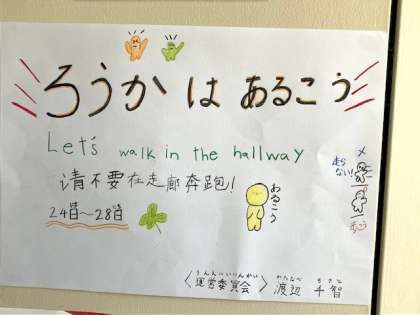 ろうかは あるこう
Let's walk in the hallway
请不要在走廊奔跑!
24日～28日
あるこう
走らない!
×
うんえいいいんかい
〈運営委員会〉
わたなべ
渡辺 千智